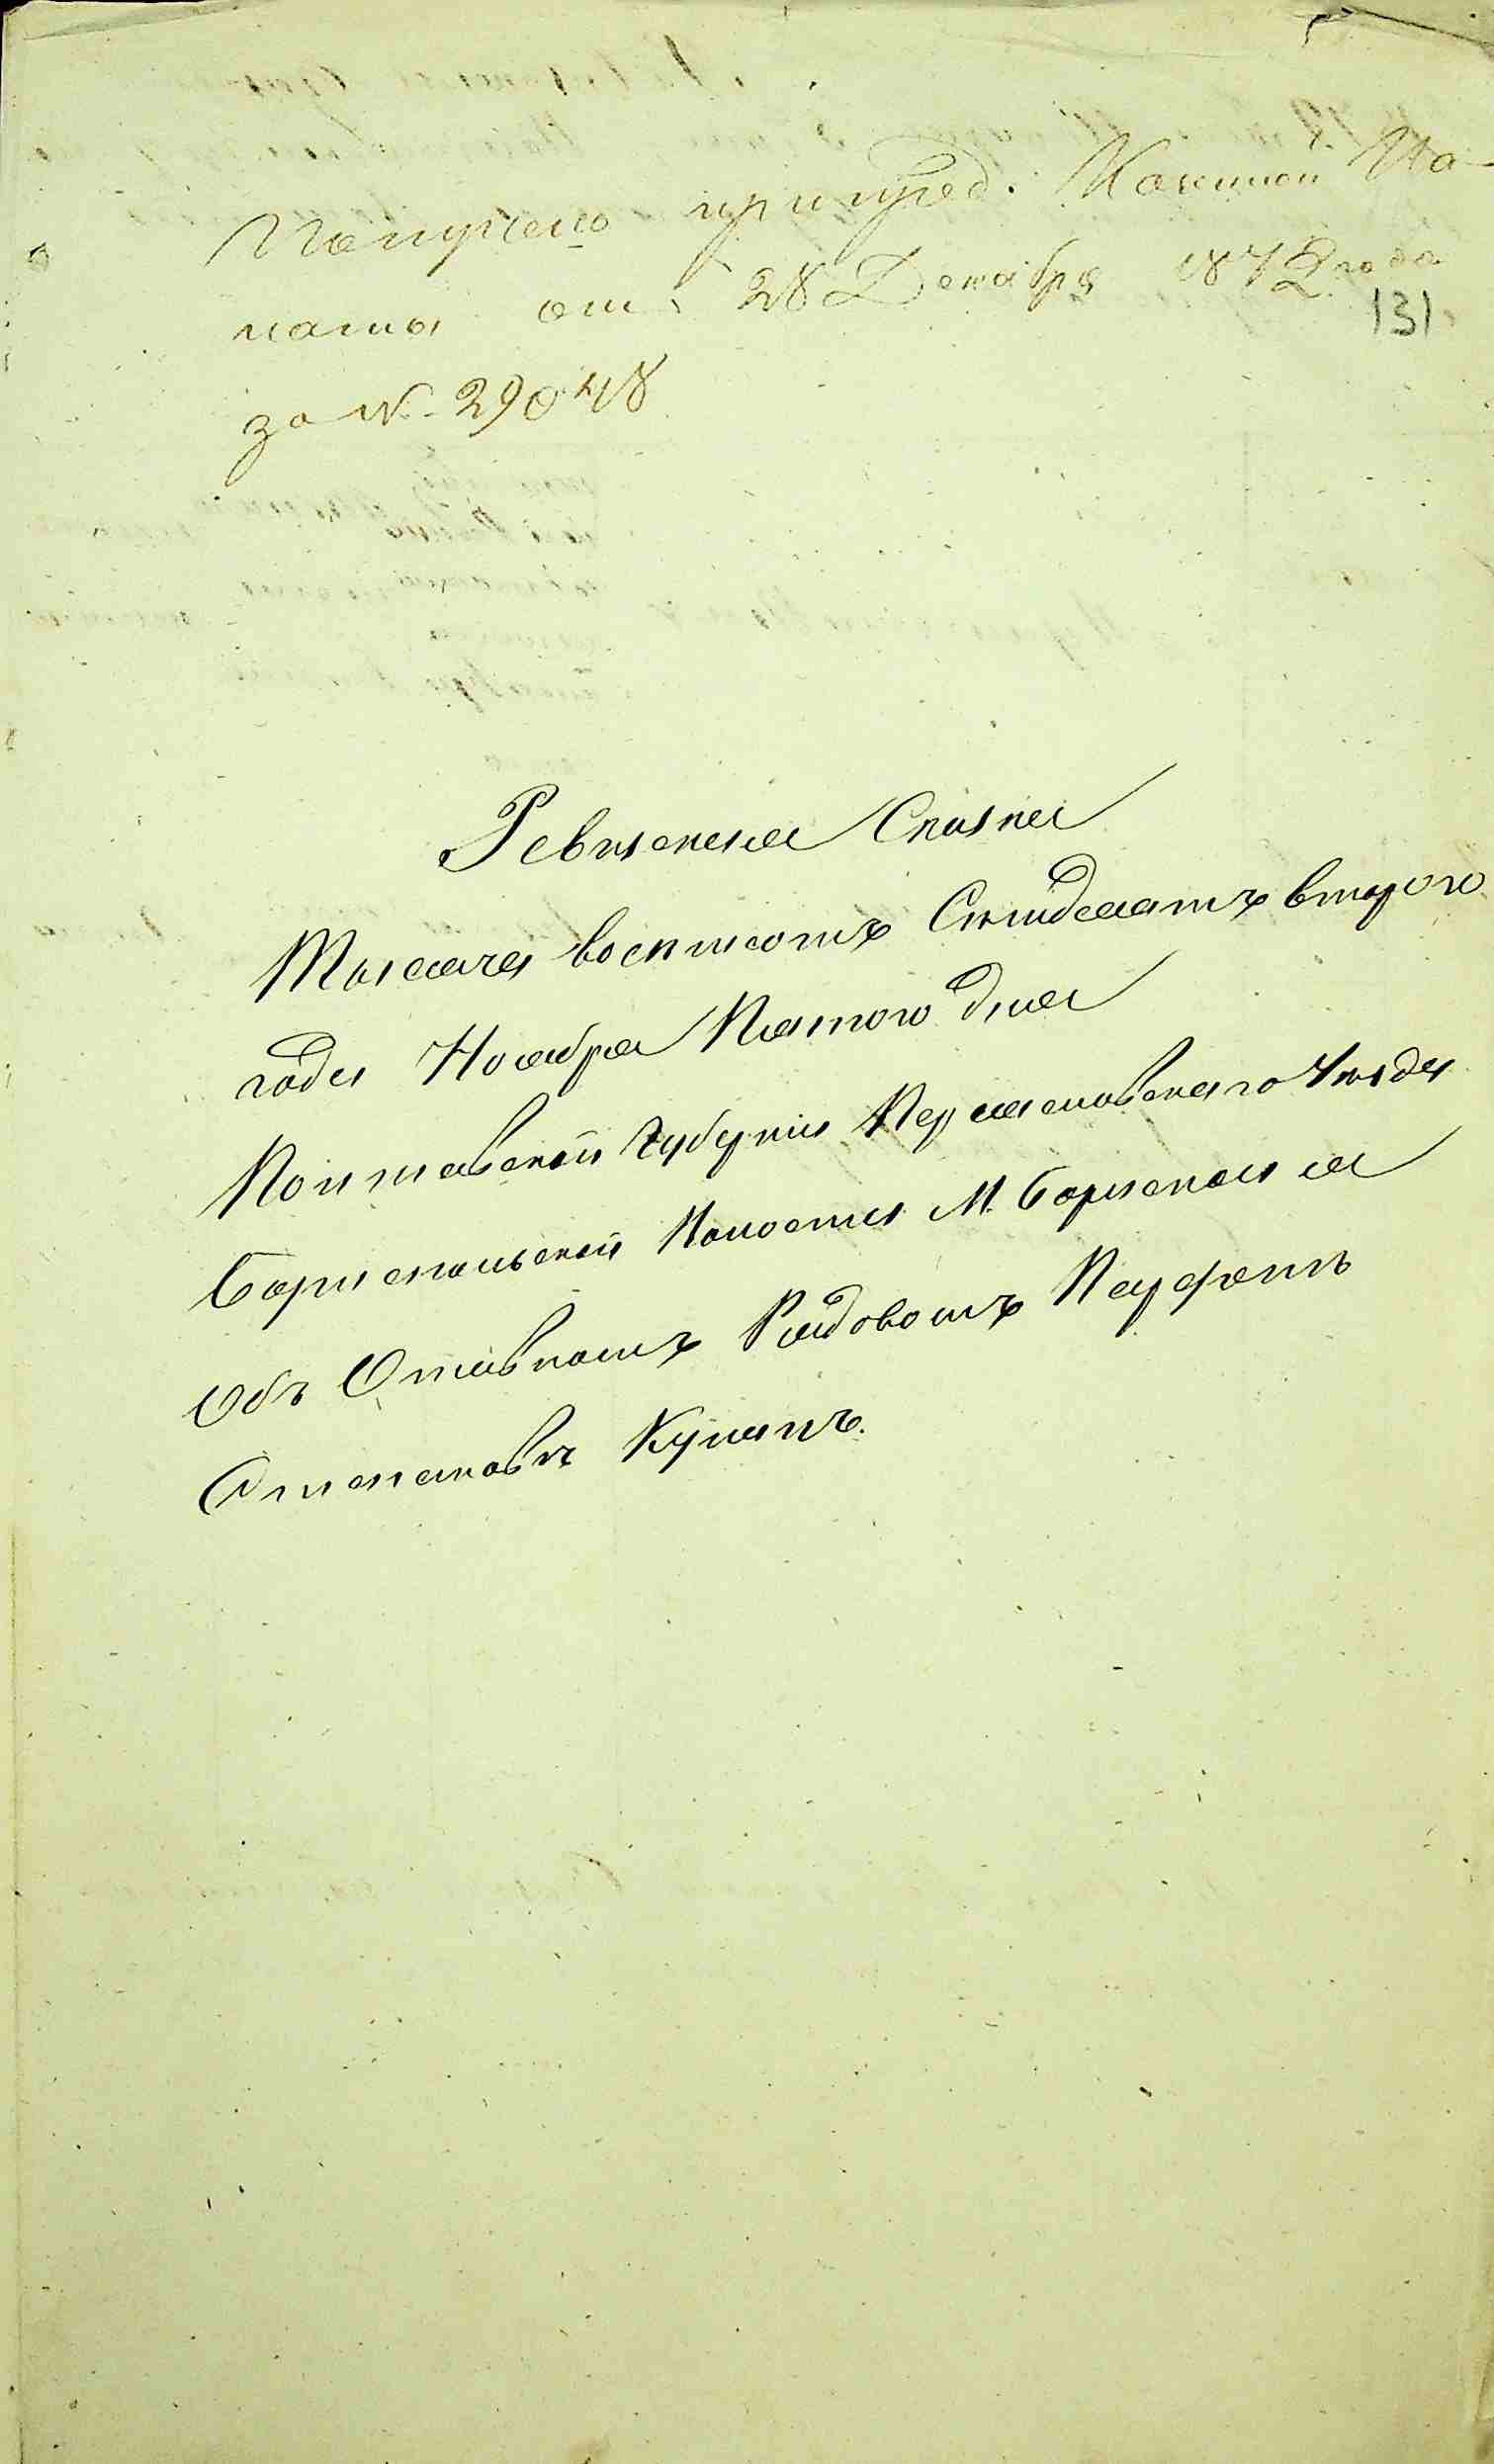 Получено при пред. Казенной Па-
латы от 28 Декабря 1872 года
131
за № 29048
Ревизская Сказка
Тысяча восемьсотъ Семьдесятъ втораго
года Ноября Пятого дня
Полтавской Губерніи Переяславскаго Уѣзда
Бориспольской Волости М. Борисполя
Объ Отставномъ Рядовомъ